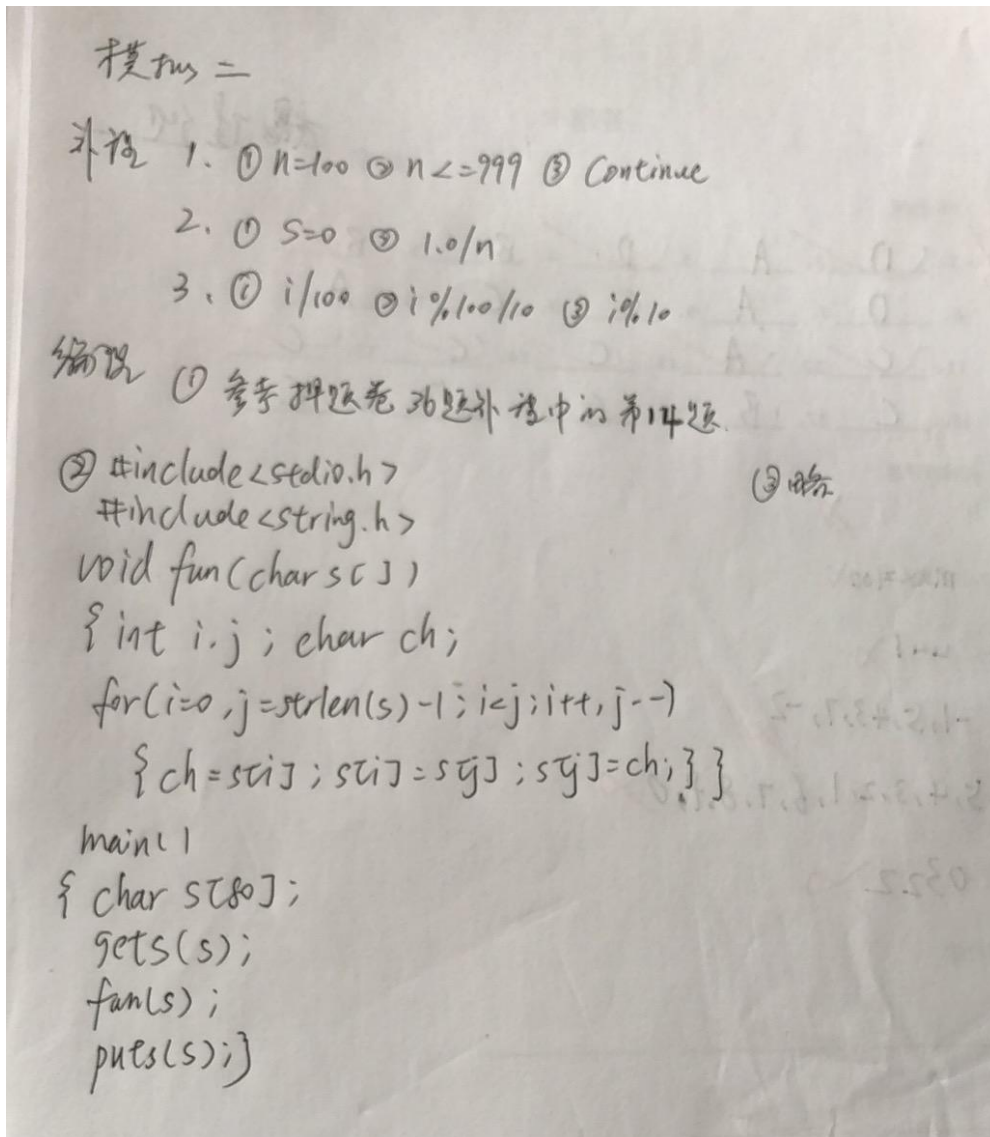 模拟二
补设 1. ① n=100 ② n<=999 ③ Continue
2. ① S=0 ② 1.0/n
3. ① i/100 ② i%100/10 ③ i%10
编设 ① 参考押题卷36题补设中的第14题.
② #include<stdio.h> ③略
#include<string.h>
void fun(char s[])
{int i.j; char ch;
for(i=0,j=strlen(s)-1;i<j;i++,j--)
{ch=s[i];s[i]=s[j];s[j]=ch;}}
main()
{ char s[80];
gets(s);
fun(s);
puts(s);}